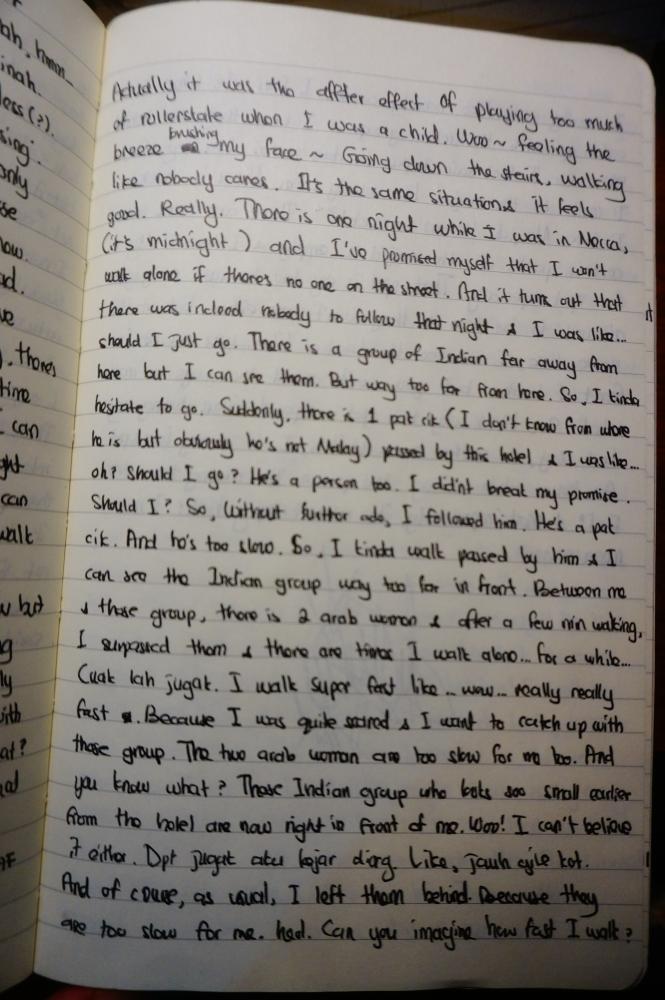 ah. hmm...
inah.
less (?).
sing.
only
se
now.
ad.
ve
). theres
time
I can
ght
can
walk
w but
g
ly
with
at?
nal
AF
Actually it was the affter effect of playing too much
of rollerstate when I was a child. Woo~ feeling the
breeze brushing my face ~ Going down the stairs, walking
like nobody cares. It's the same situations it feels
good. Really. There is one night while I was in Mecca,
(it's midnight) and I've promised myself that I won't
walk alone if theres no one on the street. And it turns out that
there was indeed nobody to follow that night & I was like...
should I just go. There is a group of Indian far away from
here but I can see them. But way too far from here. So, I kinda
hesitate to go. Suddenly, there is 1 pak cik (I don't know from where
he is but obviously he's not Malay) passed by this hotel & I was like...
oh? Should I go? He's a person too. I didn't break my promise.
Should I? So, without further ado, I followed him. He's a pak
cik. And he's too slow. So, I kinda walk passed by him & I
can see the Indian group way too far in front. Between me
& those group, there is 2 arab woman & after a few min walking,
I surpassed them & there are times I walk alone... for a while...
Cuak lah jugak. I walk super fast like... wew... really really
fast. Because I was quite scared & I want to catch up with
those group. The two arab woman are too slow for me too. And
you know what? Those Indian group who looks soo small earlier
from the hotel are now right in front of me. Woo! I can't believe
it either. Dpt jugak aku kejar diorg. Like, jauh gile kot.
And of course, as usual, I left them behind. Because they
are too slow for me. haa. Can you imagine how fast I walk?